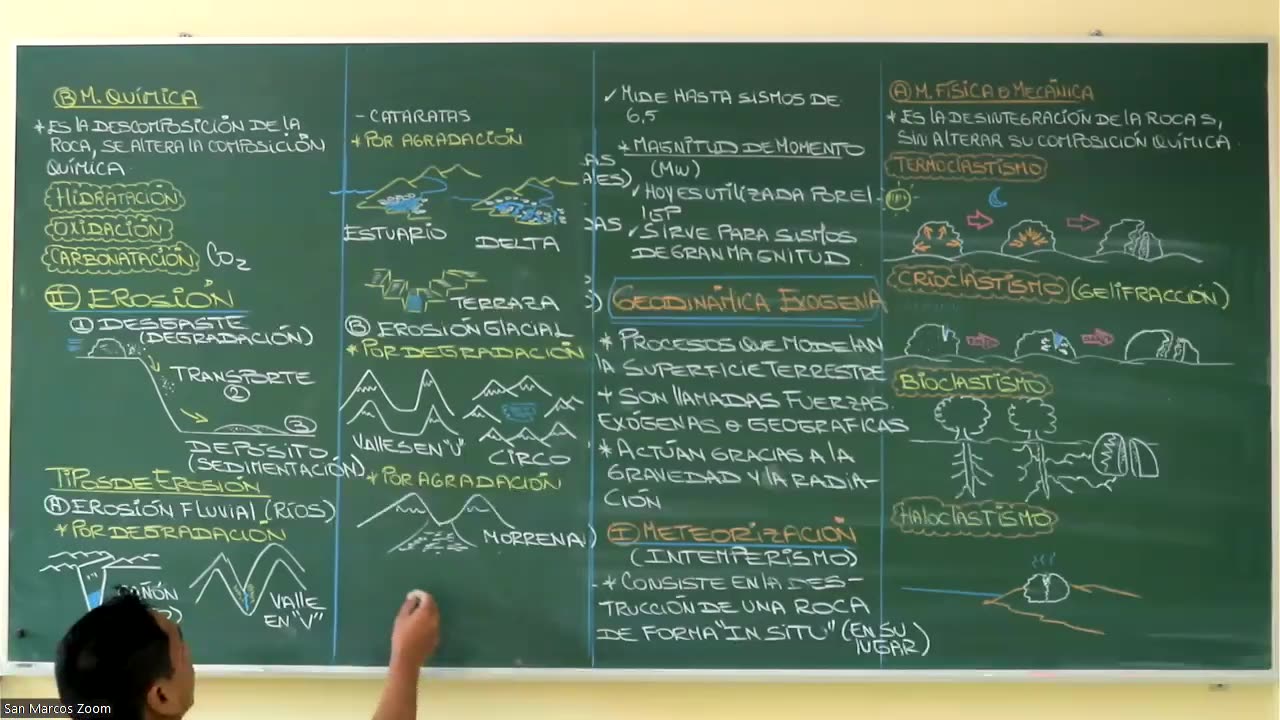 Ⓑ M. QUÍMICA
* ES LA DESCOMPOSICIÓN DE LA
ROCA, SE ALTERA LA COMPOSICIÓN
QUÍMICA
HIDRATACIÓN
OXIDACIÓN
CARBONATACIÓN CO2
II EROSIÓN
① DESGASTE
(DEGRADACIÓN)
TRANSPORTE
②
③
DEPÓSITO
(SEDIMENTACIÓN)
TIPOS DE EROSIÓN
Ⓐ EROSIÓN FLUVIAL (RÍOS)
* POR DEGRADACIÓN
VALLE
EN "V"
- CATARATAS
* POR AGRADACIÓN
ESTUARIO DELTA
TERRAZA
Ⓑ EROSIÓN GLACIAL
* POR DEGRADACIÓN
VALLES EN "U" CIRCO
* POR AGRADACIÓN
MORRENA
✓ MIDE HASTA SISMOS DE
6,5
* MAGNITUD DE MOMENTO
(MW)
✓ HOY ES UTILIZADA POR EL
IGP
✓ SIRVE PARA SISMOS
DE GRAN MAGNITUD
GEODINÁMICA EXOGENA
* PROCESOS QUE MODELAN
LA SUPERFICIE TERRESTRE
* SON LLAMADAS FUERZAS
EXÓGENAS o GEOGRAFICAS
* ACTÚAN GRACIAS A LA
GRAVEDAD Y LA RADIA-
CIÓN
I METEORIZACIÓN
(INTEMPERISMO)
* CONSISTE EN LA DES-
TRUCCIÓN DE UNA ROCA
DE FORMA "IN SITU" (EN SU
LUGAR)
Ⓐ M. FÍSICA o MECÁNICA
* ES LA DESINTEGRACIÓN DE LA ROCA S,
SIN ALTERAR SU COMPOSICIÓN QUÍMICA
TERMOCLASTISMO
CRIOCLASTISMO (GELIFRACCIÓN)
BIOCLASTISMO
HALOCLASTISMO
San Marcos Zoom